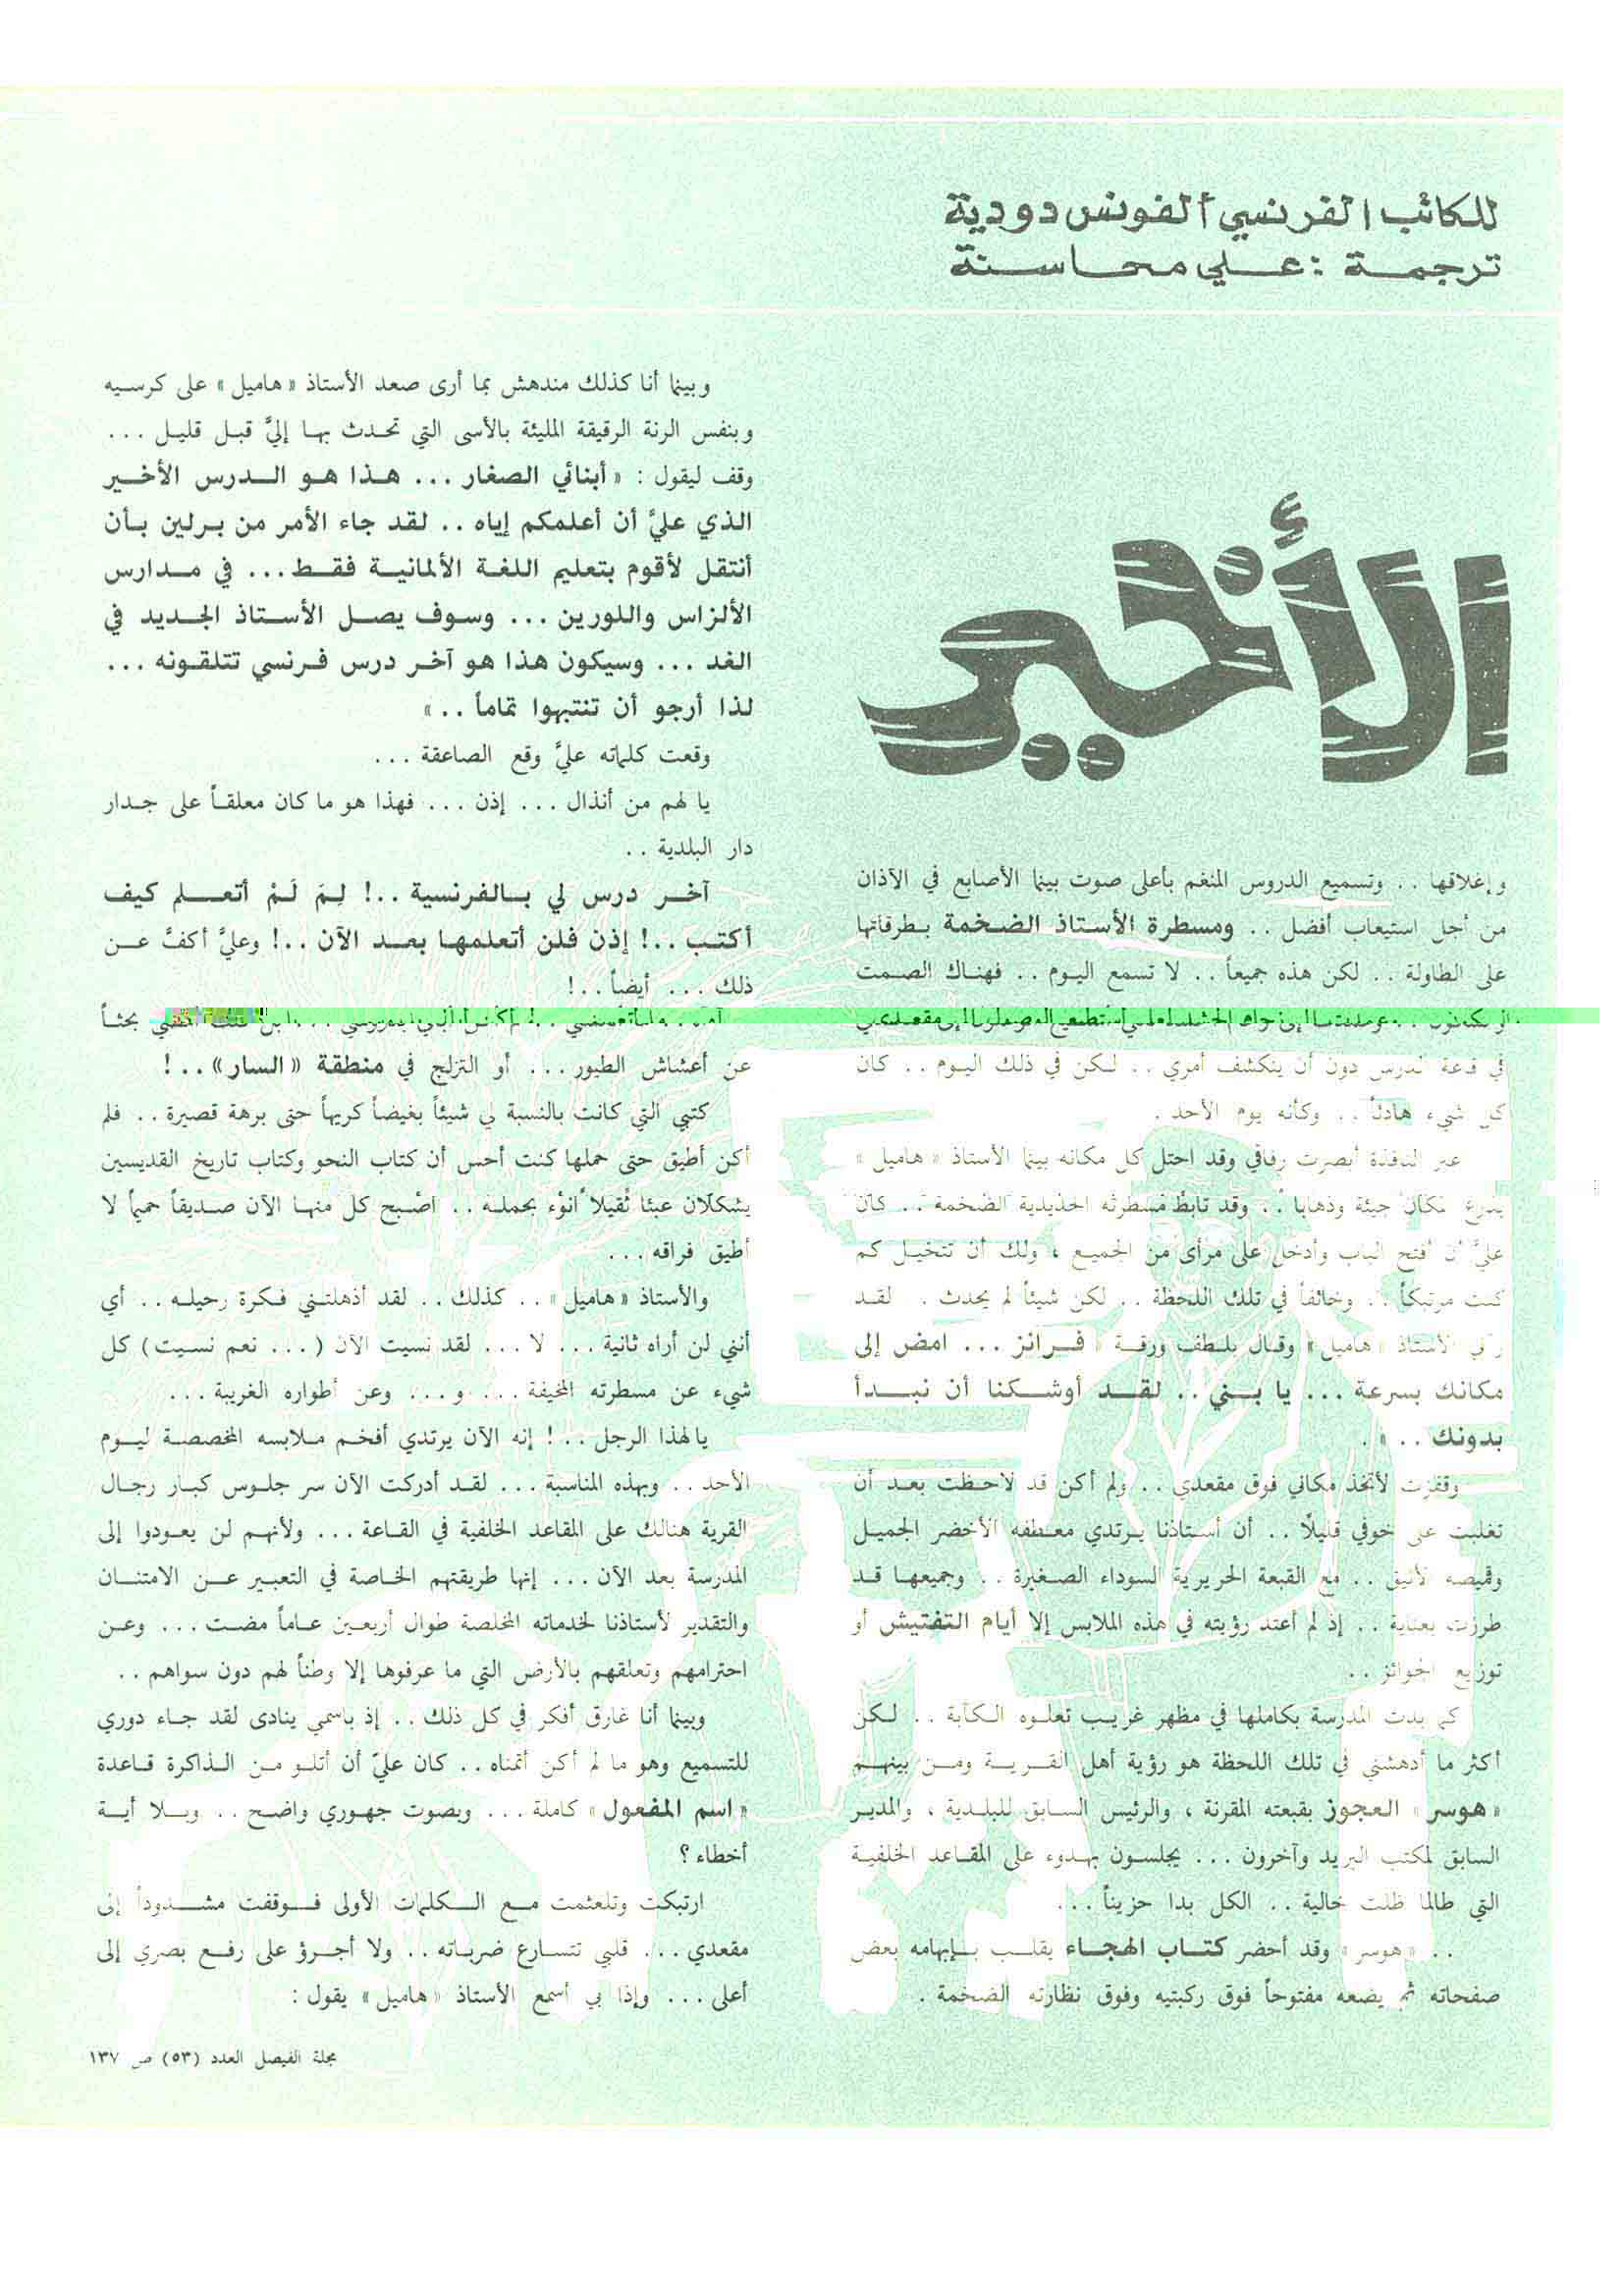 للكاتب الفرنسي ألفونس دودية
ترجمة : علي محاسنة
الأخير
وإغلاقها . . وتسميع الدروس المنغم بأعلى صوت بينما الأصابع في الآذان
من أجل استيعاب أفضل . . ومسطرة الأستاذ الضخمة بطرقاتها
على الطاولة . . لكن هذه جميعاً . . لا تسمع اليوم . . فهناك الصمت
في قاعة الدرس دون أن ينكشف أمري . . لكن في ذلك اليوم . . كان
كل شيء هادئاً . . وكأنه يوم الأحد .
عبر النافذة أبصرت رفاقي وقد احتل كل مكانه بينما الأستاذ « هاميل »
يذرع المكان جيئة وذهاباً . . وقد تأبط مسطرته الحديدية الضخمة . . كان
عليَّ أن أفتح الباب وأدخل على مرأى من الجميع ، ولك أن تتخيل كم
كنت مرتبكاً . . وخائفاً في تلك اللحظة . . لكن شيئاً لم يحدث . لقد
رآني الأستاذ « هاميل » وقال بلطف ورقة « فرانز ... امض إلى
مكانك بسرعة ... يا بني . . لقد أوشكنا أن نبدأ
بدونك . . » .
وقفزت لأتخذ مكاني فوق مقعدي . . ولم أكن قد لاحظت بعد أن
تغلبت على خوفي قليلًا . . أن أستاذنا يرتدي معطفه الأخضر الجميل
وقميصه الأنيق . . مع القبعة الحريرية السوداء الصغيرة . . وجميعها قد
طرزت بعناية . . إذ لم أعتد رؤيته في هذه الملابس إلا أيام التفتيش أو
توزيع الجوائز . .
كما بدت المدرسة بكاملها في مظهر غريب تعلوه الكآبة . . لكن
أكثر ما أدهشني في تلك اللحظة هو رؤية أهل القرية ومن بينهم
« هوسر » العجوز بقبعته المقرنة ، والرئيس السابق للبلدية ، والمدير
السابق لمكتب البريد وآخرون ... يجلسون بهدوء على المقاعد الخلفية
التي طالما ظلت خالية . . الكل بدا حزيناً ...
. . « هوسر » وقد أحضر كتاب الهجاء يقلب بإبهامه بعض
صفحاته ثم يضعه مفتوحاً فوق ركبتيه وفوق نظارته الضخمة .
وبينما أنا كذلك مندهش بما أرى صعد الأستاذ « هاميل » على كرسيه
وبنفس الرنة الرقيقة المليئة بالأسى التي تحدث بها إليَّ قبل قليل ...
وقف ليقول : « أبنائي الصغار ... هذا هو الدرس الأخير
الذي عليَّ أن أعلمكم إياه . . لقد جاء الأمر من برلين بأن
أنتقل لأقوم بتعليم اللغة الألمانية فقط ... في مدارس
الألزاس واللورين ... وسوف يصل الأستاذ الجديد في
الغد ... وسيكون هذا هو آخر درس فرنسي تتلقونه ...
لذا أرجو أن تنتبهوا تماماً . . »
وقعت كلماته عليَّ وقع الصاعقة ...
يا لهم من أنذال ... إذن ... فهذا هو ما كان معلقاً على جدار
دار البلدية . .
آخر درس لي بالفرنسية . . ! لِمَ لَمْ أتعلم كيف
أكتب . . ! إذن فلن أتعلمها بعد الآن . . ! وعليَّ أكفَّ عن
ذلك ... أيضاً . . !
بحثاً
عن أعشاش الطيور ... أو التزلج في منطقة « السار » . . !
كتبي التي كانت بالنسبة لي شيئاً بغيضاً كريهاً حتى برهة قصيرة . . فلم
أكن أطيق حتى حملها كنت أحس أن كتاب النحو وكتاب تاريخ القديسين
يشكلان عبئا ثقيلا أنوء بحمله . . أصبح كل منها الآن صديقاً حميماً لا
أطيق فراقه ...
والأستاذ « هاميل » . . كذلك . . لقد أذهلتني فكرة رحيله . . أي
أنني لن أراه ثانية ... لا ... لقد نسيت الآن ( ... نعم نسيت ) كل
شيء عن مسطرته المخيفة ... و ... وعن أطواره الغريبة ...
يالهذا الرجل . . ! إنه الآن يرتدي أفخم ملابسه المخصصة ليوم
الأحد . . وبهذه المناسبة ... لقد أدركت الآن سر جلوس كبار رجال
القرية هنالك على المقاعد الخلفية في القاعة ... ولأنهم لن يعودوا إلى
المدرسة بعد الآن ... إنها طريقتهم الخاصة في التعبير عن الامتنان
والتقدير لأستاذنا لخدماته المخلصة طوال أربعين عاماً مضت ... وعن
احترامهم وتعلقهم بالأرض التي ما عرفوها إلا وطناً لهم دون سواهم . .
وبينما أنا غارق أفكر في كل ذلك . . إذ باسمي ينادى لقد جاء دوري
للتسميع وهو ما لم أكن أتمناه . . كان عليّ أن أتلو من الذاكرة قاعدة
« اسم المفعول » كاملة ... وبصوت جهوري واضح . . وبلا أية
أخطاء ؟
ارتبكت وتلعثمت مع الكلمات الأولى فوقفت مشدوداً إلى
مقعدي ... قلبي تتسارع ضرباته . . ولا أجرؤ على رفع بصري إلى
أعلى ... وإذا بي أسمع الأستاذ « هاميل » يقول :
مجلة الفيصل العدد (٥٣) ص ١٣٧